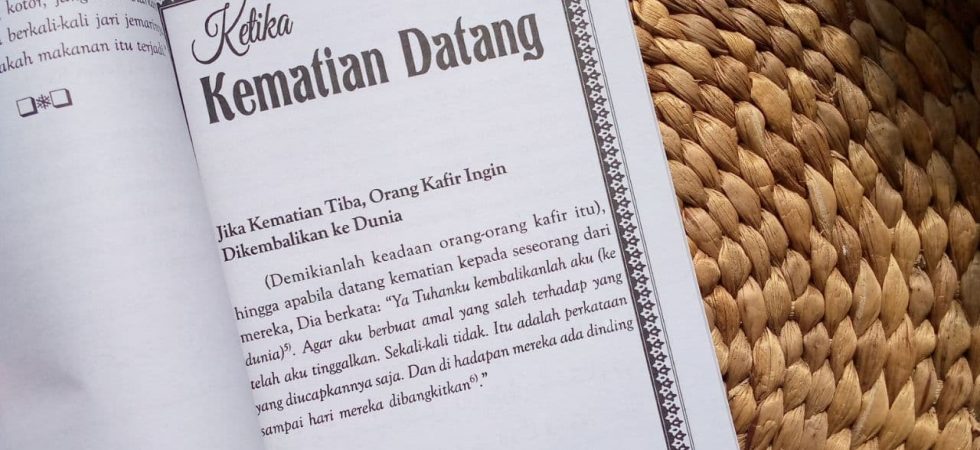 kotor, jang
berkali-kali jari jemarinya
akah makanan itu terjadi
Ketika
Kematian Datang
Jika Kematian Tiba, Orang Kafir Ingin
Dikembalikan ke Dunia
(Demikianlah keadaan orang-orang kafir itu),
hingga apabila datang kematian kepada seseorang dari
mereka, Dia berkata: “Ya Tuhanku kembalikanlah aku (ke
dunia)⁵⁾. Agar aku berbuat amal yang saleh terhadap yang
telah aku tinggalkan. Sekali-kali tidak. Itu adalah perkataan
yang diucapkannya saja. Dan di hadapan mereka ada dinding
sampai hari mereka dibangkitkan⁶⁾.”